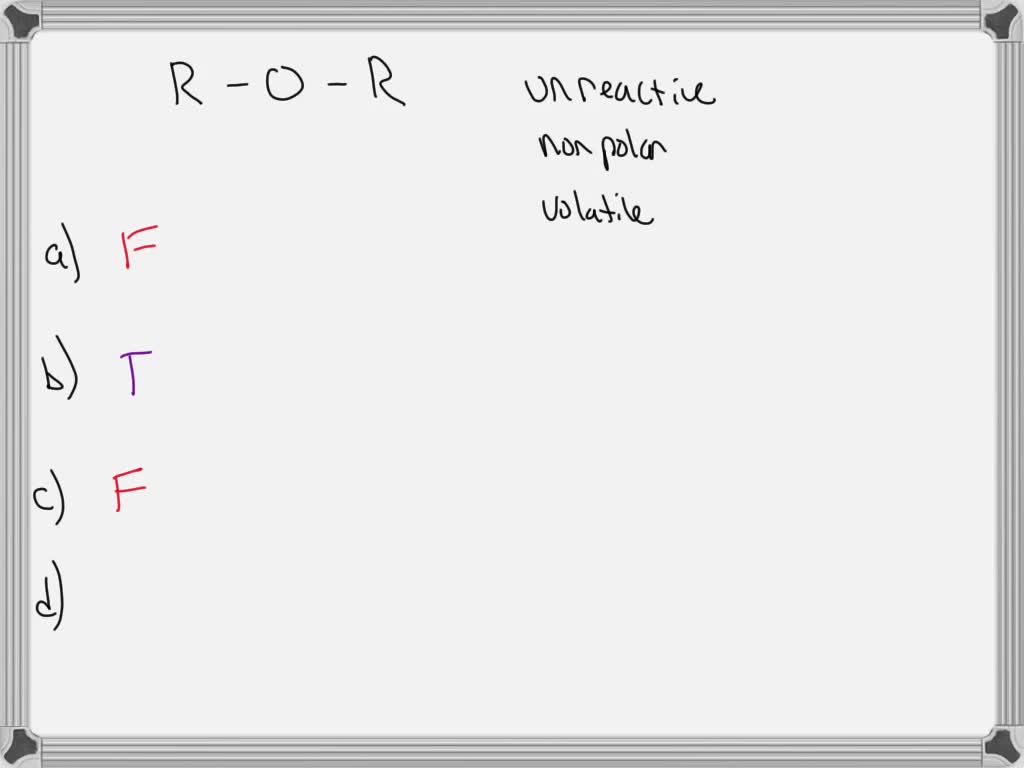 R - O - R
unreactive
nonpolar
volatile
a) F
b) T
c) F
d)